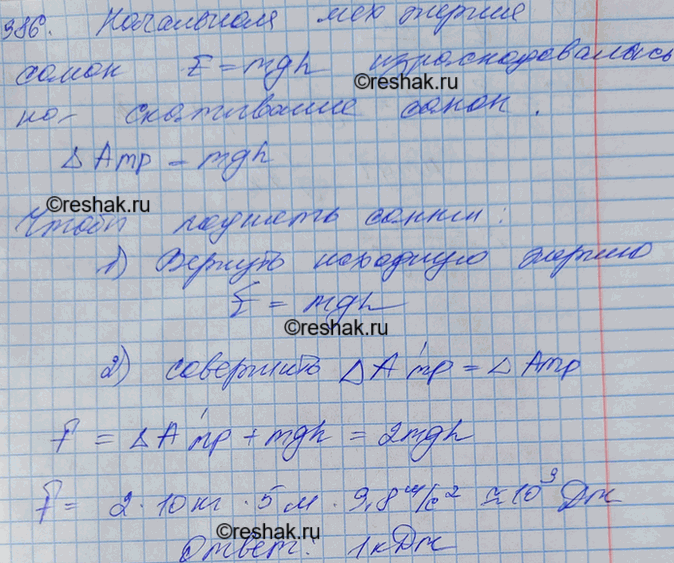 386. Начальная мех энергия
санок E = mgh израсходовалась
©reshak.ru
на скатывание санок.
ΔAтр = mgh
©reshak.ru
Чтобы поднять санки:
1) Вернуть исходную энергию
E = mgh
©reshak.ru
2) совершить ΔA'тр = ΔAтр
F = ΔA'тр + mgh = 2mgh
F = 2 · 10 кг · 5 м · 9,8 м/с² ≈ 10³ Дж
©reshak.ru
Ответ: 1 кДж